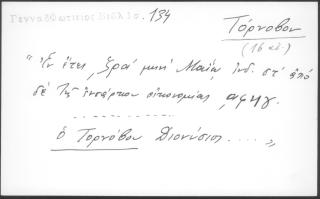 Γενναδφωτίτιος Βιβλιο. 134
Τόρνοβον
(16 αἰ.)
"Ἐν ἔτει ͵ζρα' μηνὶ Μαΐῳ ἰνδ. στ' ἀπὸ
δὲ τῆς ἐνσάρκου οἰκονομίας ͵αφηγ.
ὁ Τορνόβου Διονύσιος .....»